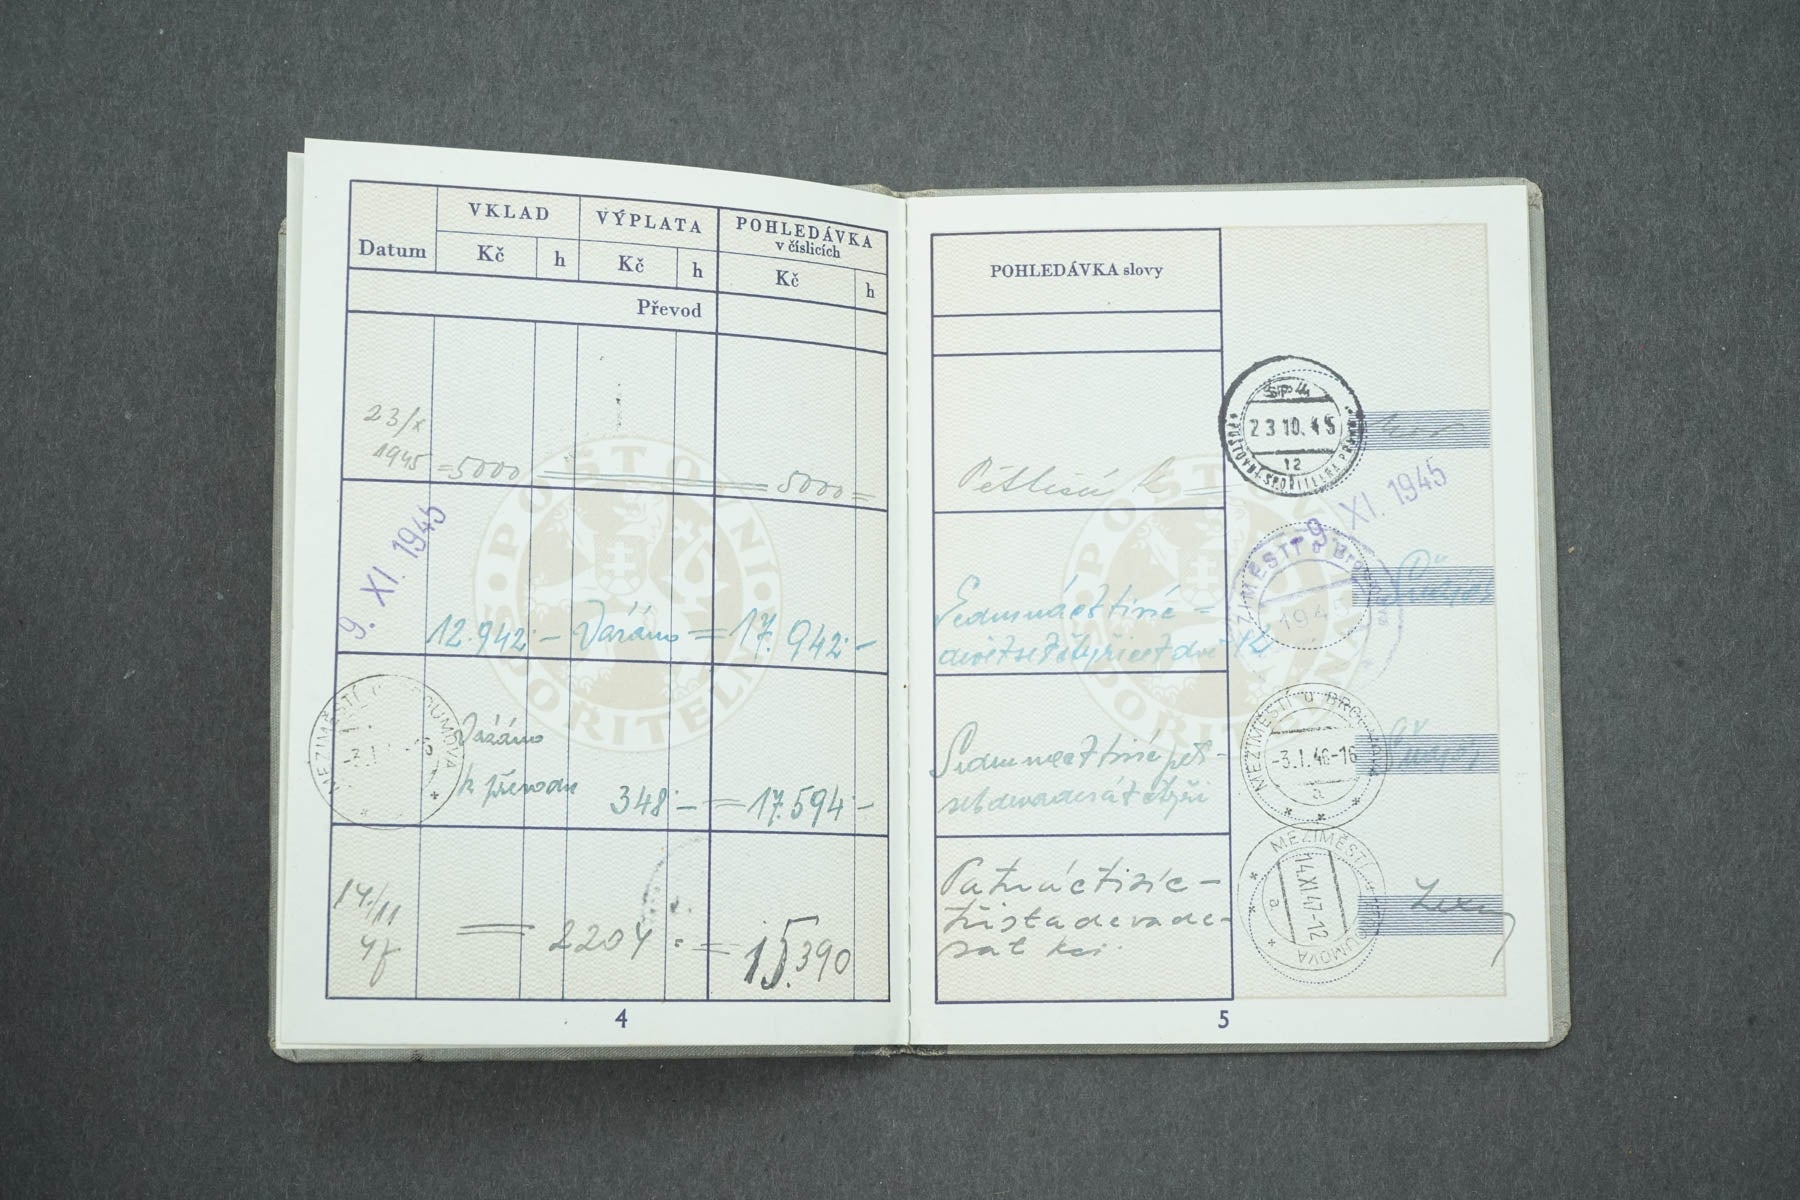 Datum
VKLAD
VÝPLATA
POHLEDÁVKA
v číslicích
Kč
h
Kč
h
Kč
h
Převod
23/X
1945 =5000 5000=
9. XI. 1945
12.942·- Vázáno = 17.942·-
Vázáno
k převodu 348·- = 17.594·-
14./11
47 2204·= 15.390
POŠTOVNÍ SPOŘITELNA
MEZIMĚSTÍ U BROUMOVA
4
POHLEDÁVKA slovy
Pěttisíc
Sedmnácttisíc=
devětsetčtyřicetdva Kč
Sedmnácttisícpět-
setdevadesátčtyři
Patnácttisíc-
třistadevade-
sát Kčs
SP 4
23 10. 45
12
POŠTOVNÍ SPOŘITELNA PRAHA
-9. XI. 1945
MEZIMĚSTÍ u Broumova
1945
MEZIMĚSTÍ U BROUMOVA
-3.I.46-16
a
MEZIMĚSTÍ U BROUMOVA
14.XI.47-12
a
5